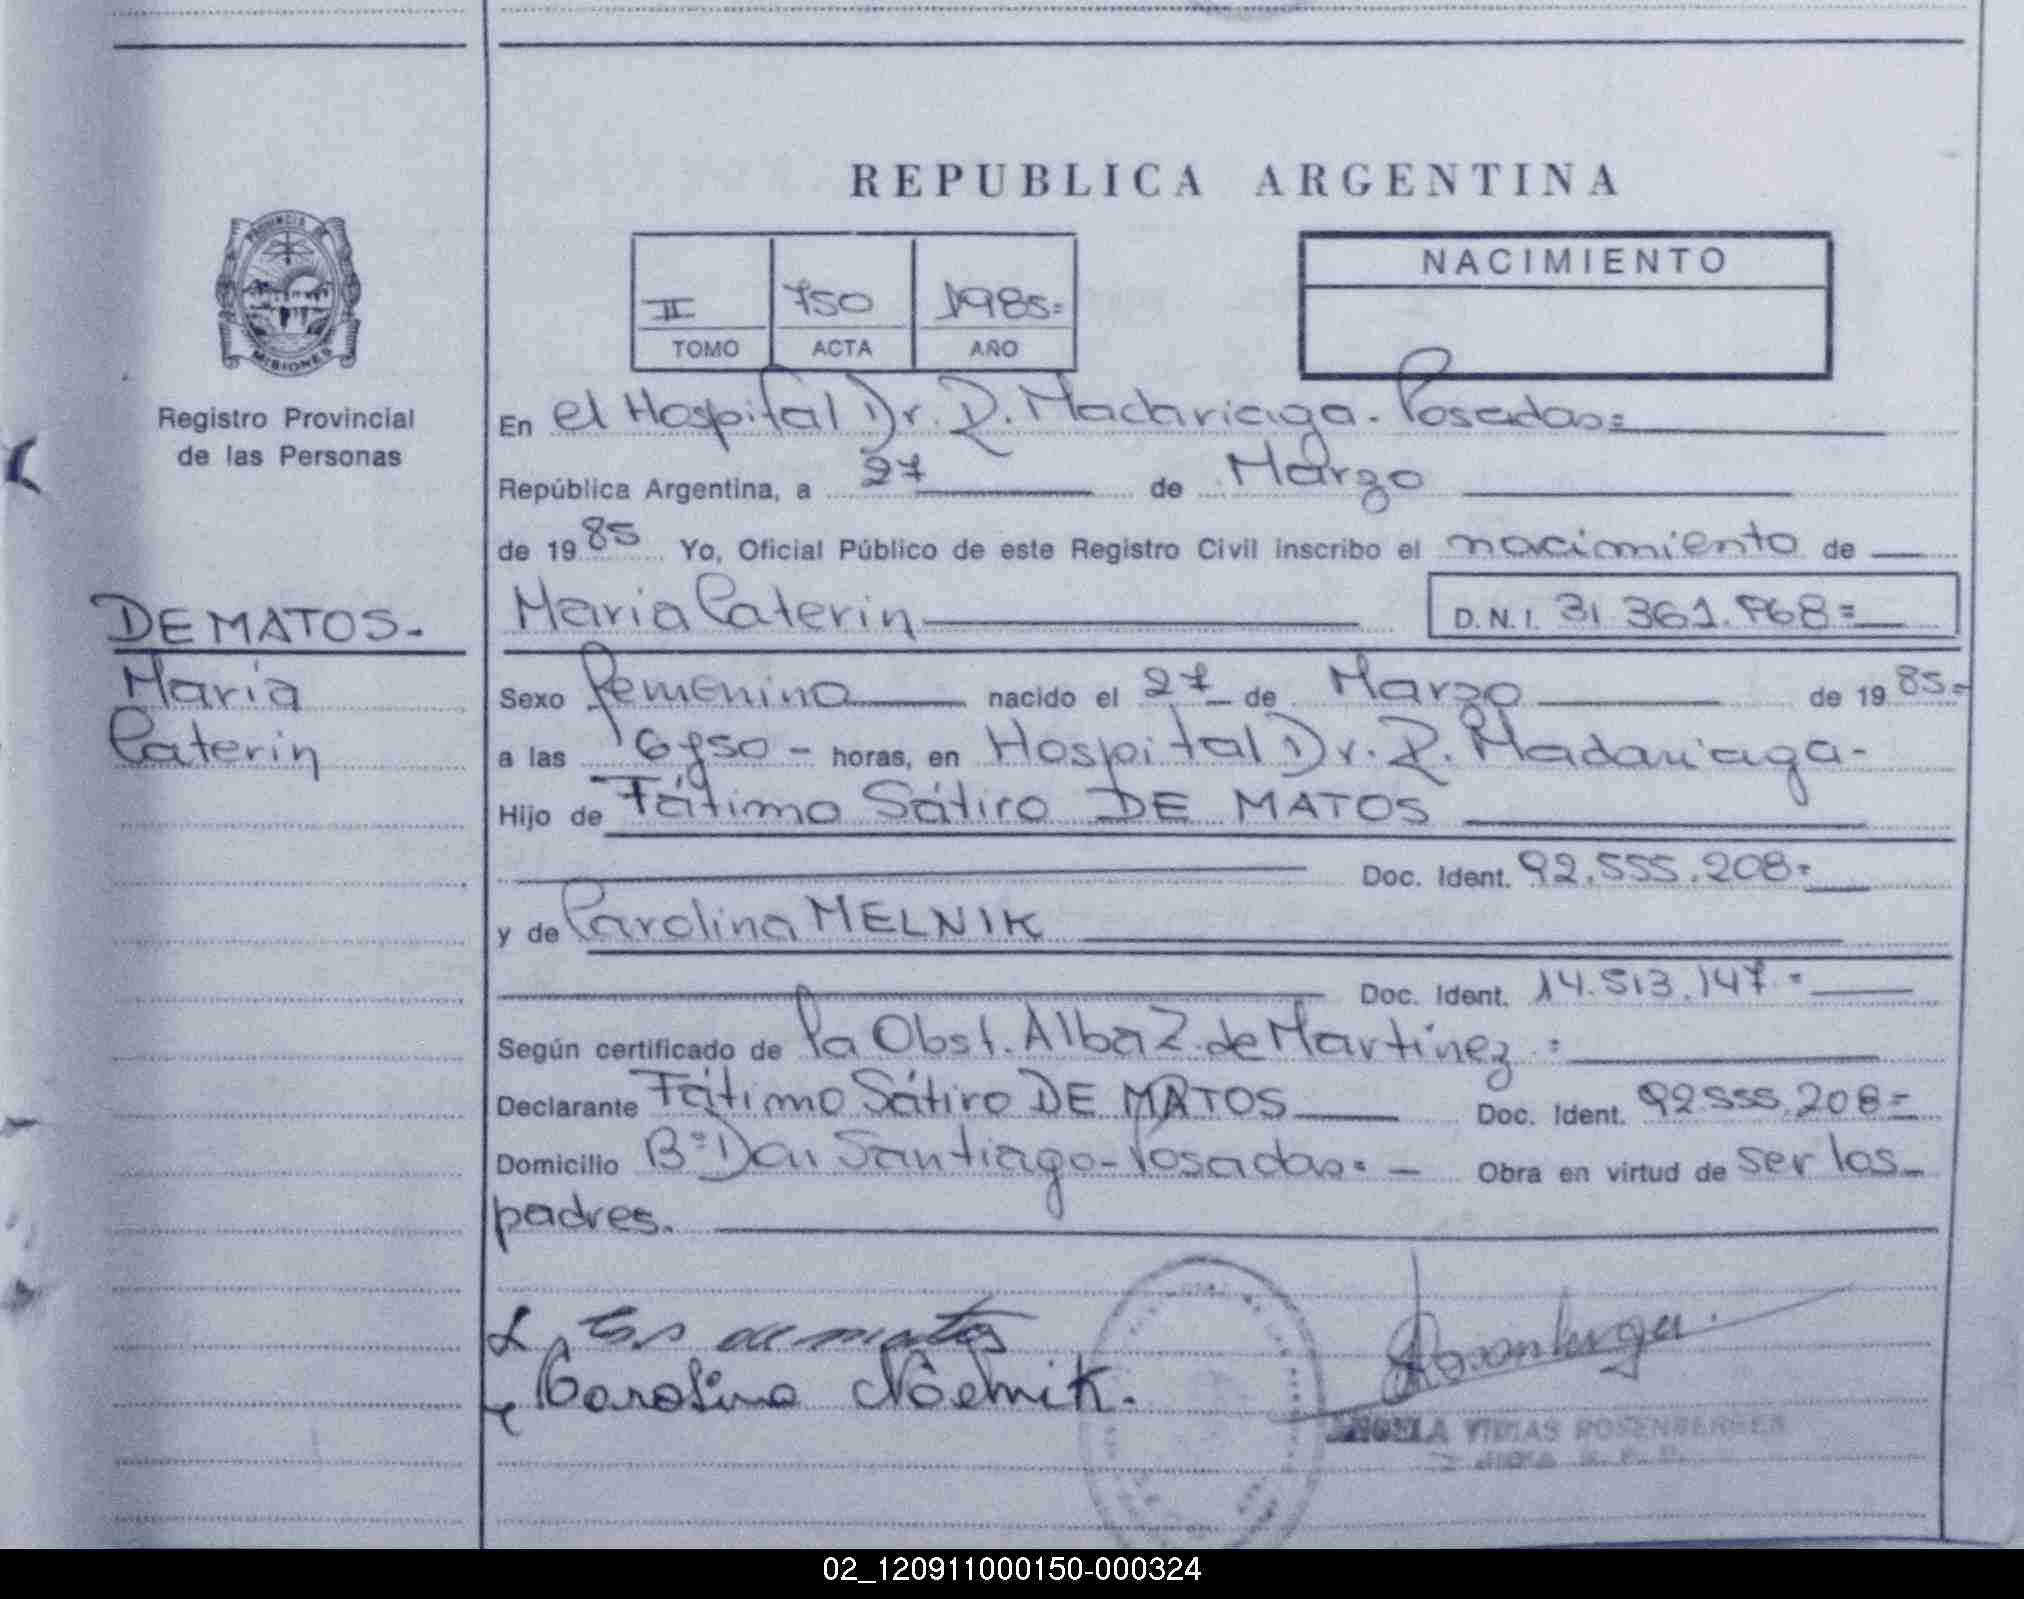 REPUBLICA ARGENTINA
PROVINCIA DE
MISIONES
Registro Provincial
de las Personas
II 750 1985=
TOMO ACTA AÑO
NACIMIENTO
En el Hospital Dr. R. Madariaga. Posadas=
República Argentina, a 27 de Marzo
de 1985 Yo, Oficial Público de este Registro Civil inscribo el nacimiento de
DE MATOS.
Maria
Caterin
Maria Caterin
D.N.I. 31.361.768=
Sexo femenino nacido el 27 de Marzo de 1985=
a las horas, en Hospital Dr. R. Madariaga-
Hijo de Fátimo Sátiro DE MATOS
Doc. Ident. 92.555.208=
y de Carolina MELNIK
Doc. Ident. 14.513.147.=
Según certificado de la Obst. Alba Z. de Martinez.=
Declarante Fátimo Sátiro DE MATOS Doc. Ident. 92.555.208=
Domicilio B° Don Santiago-Posadas= Obra en virtud de ser los
padres.
de matos
Carolina Melnik.
ROSENBERGER
02_120911000150-000324